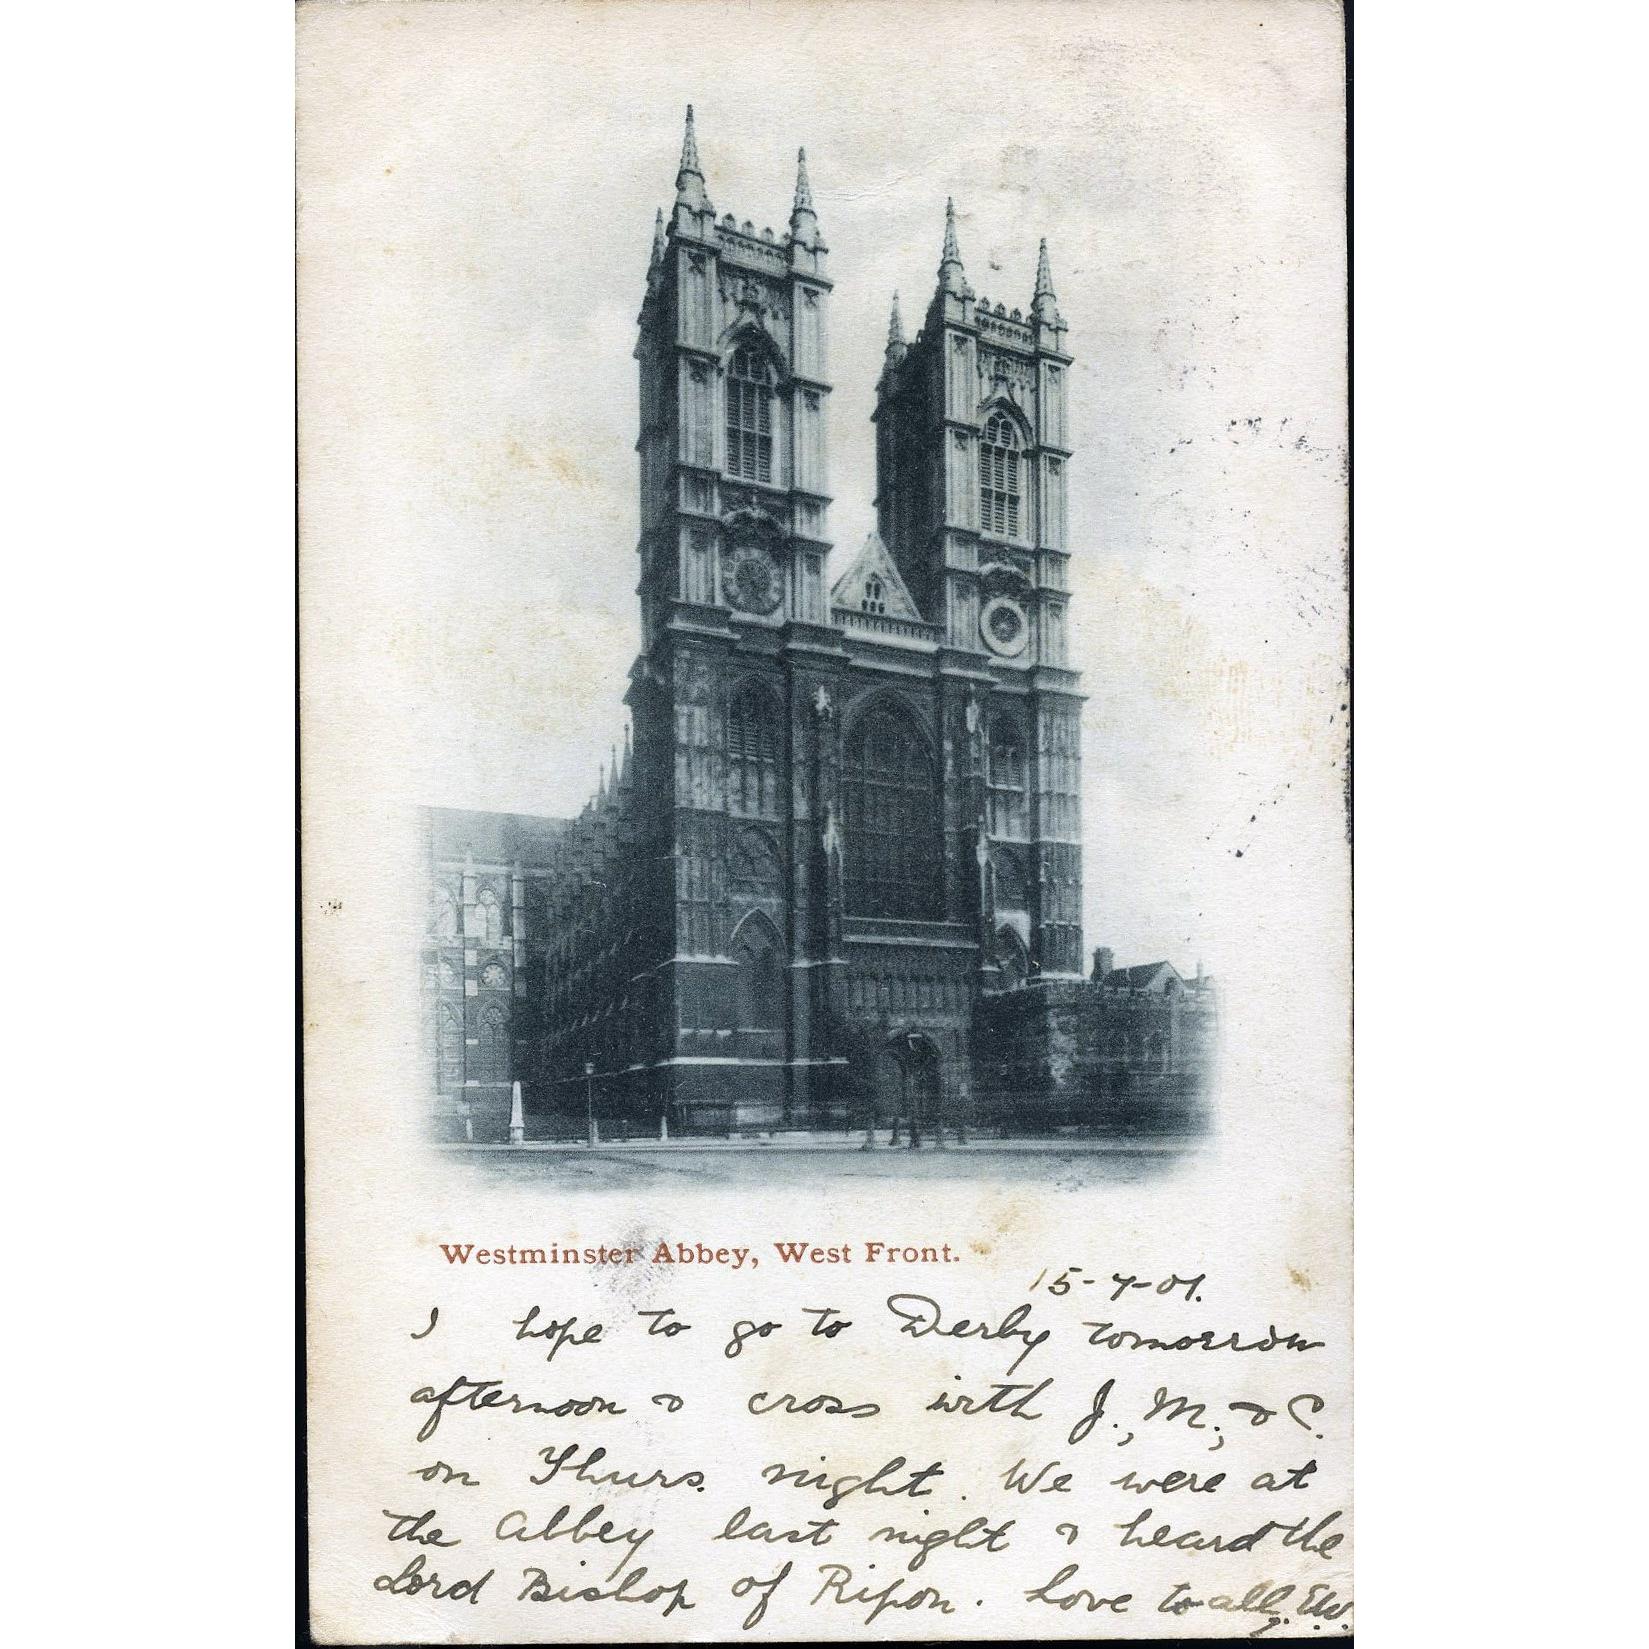 Westminster Abbey, West Front.
15-7-01.
I hope to go to Derby tomorrow
afternoon & cross with J., M., & C.
on Thurs. night. We were at
the Abbey last night & heard the
Lord Bishop of Ripon. Love to all, E.W.